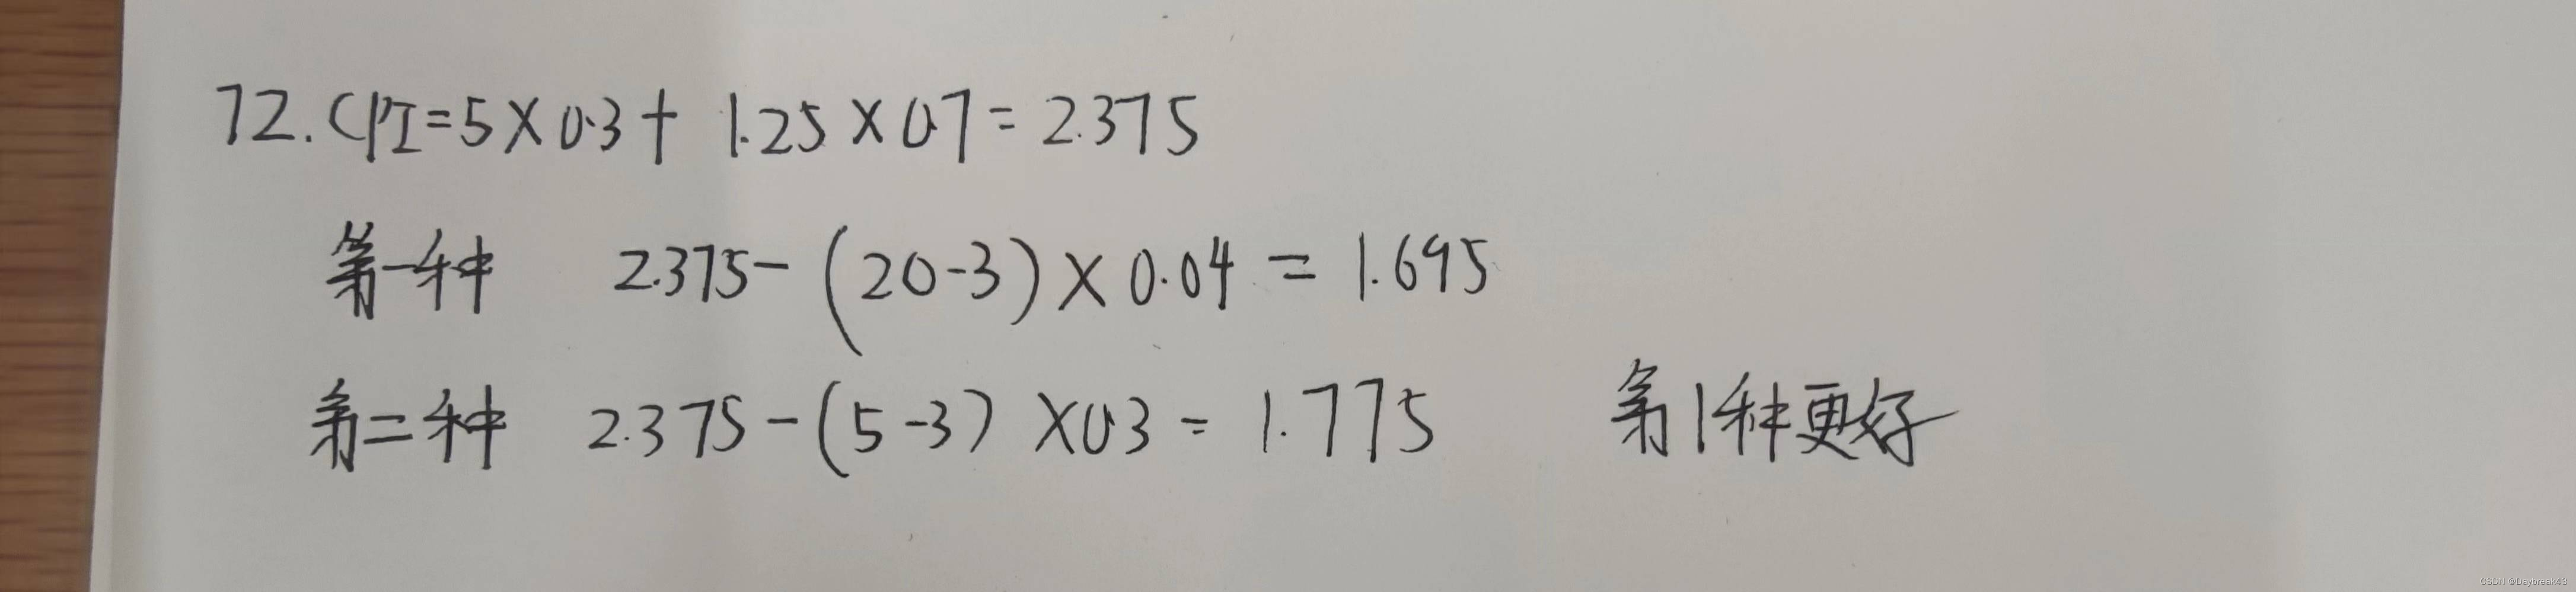 72. CPI=5×0.3+ 1.25×0.7=2.375
第一种 2.375-(20-3)×0.04=1.695
第二种 2.375-(5-3)×0.3=1.775 第1种更好
CSDN @Daybreak43